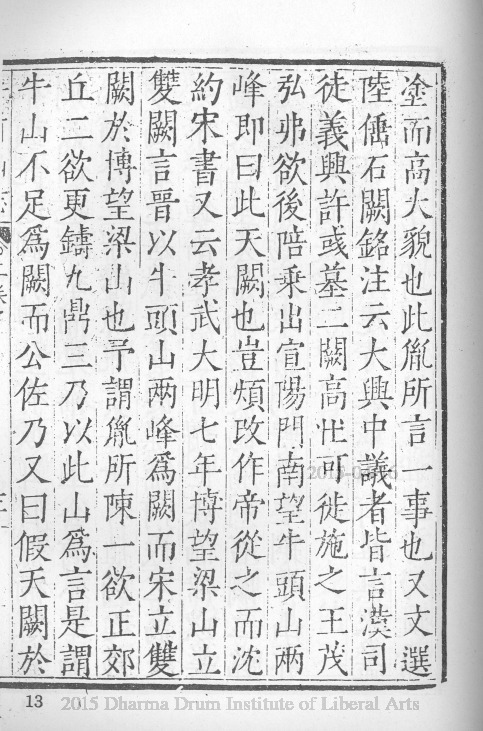 塗而高大貌也此胤所言一事也又文選
陸倕石闕銘注云大興中議者皆言漢司
徒義興許彧墓二闕高壯可徙施之王茂
弘弗欲後陪乗出宣陽門南望牛頭山兩
峰即曰此天闕也豈煩改作帝從之而沈
約宋書又云孝武大明七年博望梁山立
雙闕言晉以牛頭山兩峰爲闕而宋立雙
闕於博望梁山也予謂胤所陳一欲正郊
丘二欲更鑄九鼎三乃以此山爲言是謂
牛山不足爲闕而公佐乃又曰假天闕於
13 2015 Dharma Drum Institute of Liberal Arts